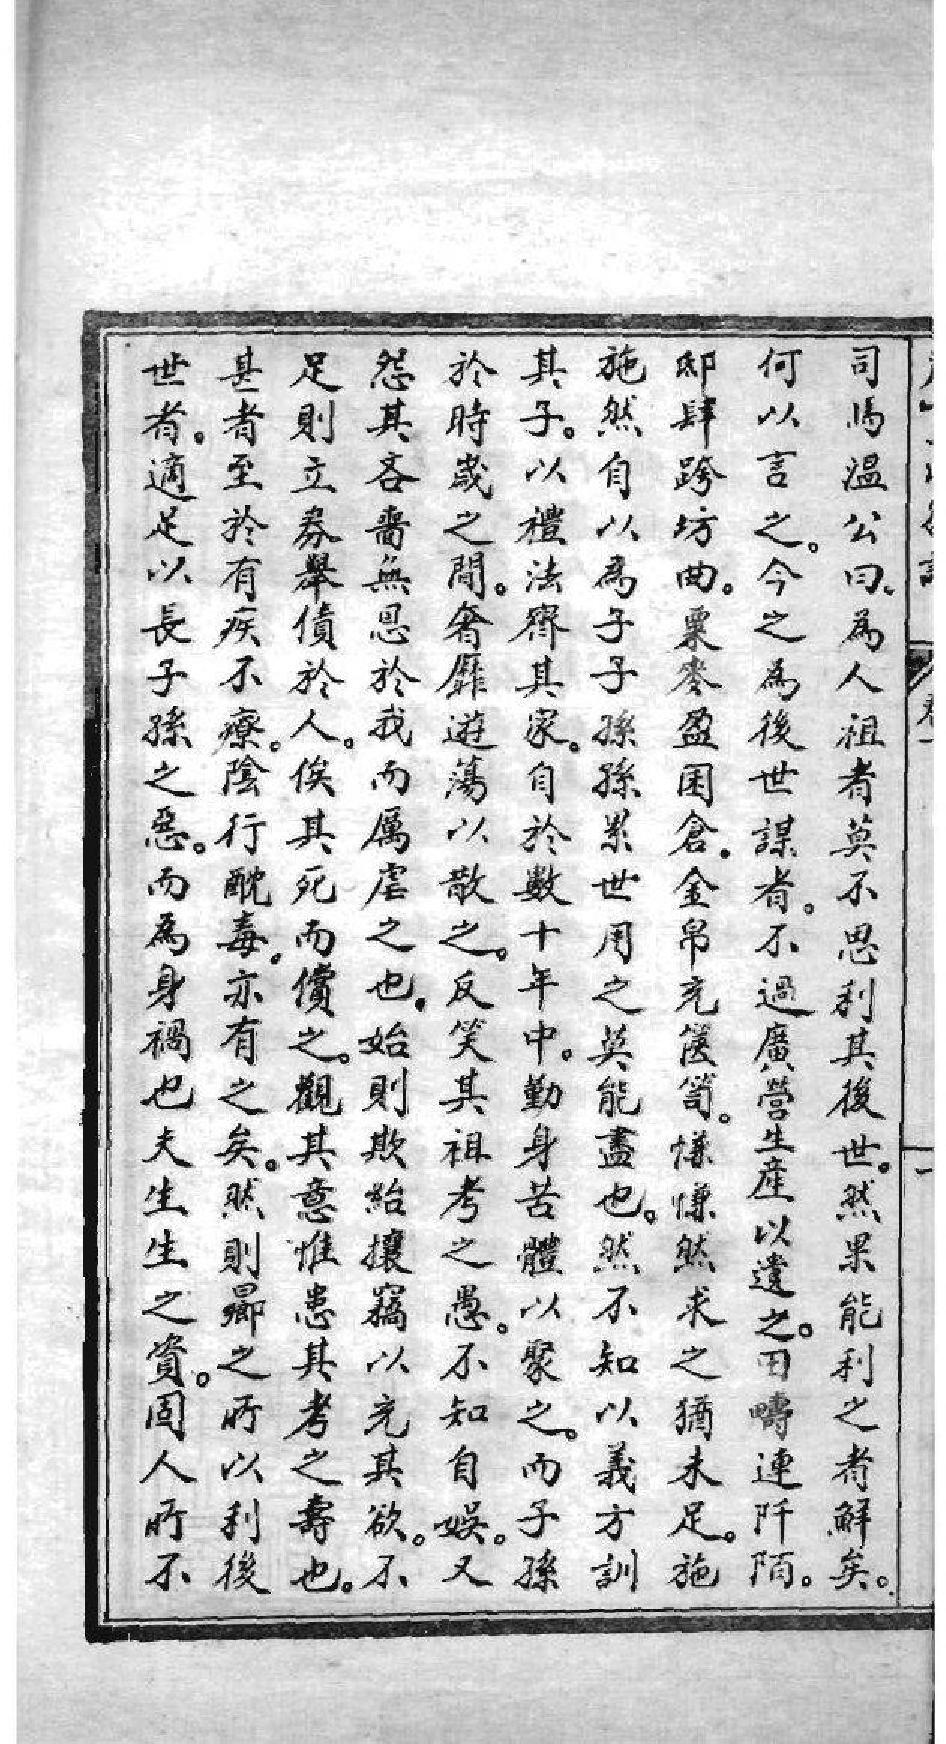 司馬溫公曰、為人祖者莫不思利其後世。然果能利之者解矣。
何以言之。今之為後世謀者。不過廣營生產以遺之。田疇連阡陌。
邸肆跨坊曲。粟麥盈囷倉。金帛充篋笥。慊慊然求之猶未足。施
施然自以為子子孫孫累世用之莫能盡也。然不知以義方訓
其子。以禮法齊其家。自於數十年中。勤身苦體以聚之。而子孫
於時歲之間。奢靡遊蕩以散之。反笑其祖考之愚。不知自娛。又
怨其吝嗇無恩於我而厲虐之也。始則欺紿攘竊以充其欲。不
足則立券舉債於人。俟其死而償之。觀其意惟患其考之壽也。
甚者至於有疾不療。陰行酖毒。亦有之矣。然則曏之所以利後
世者。適足以長子孫之惡。而為身禍也夫生生之資。固人所不
卷一
一